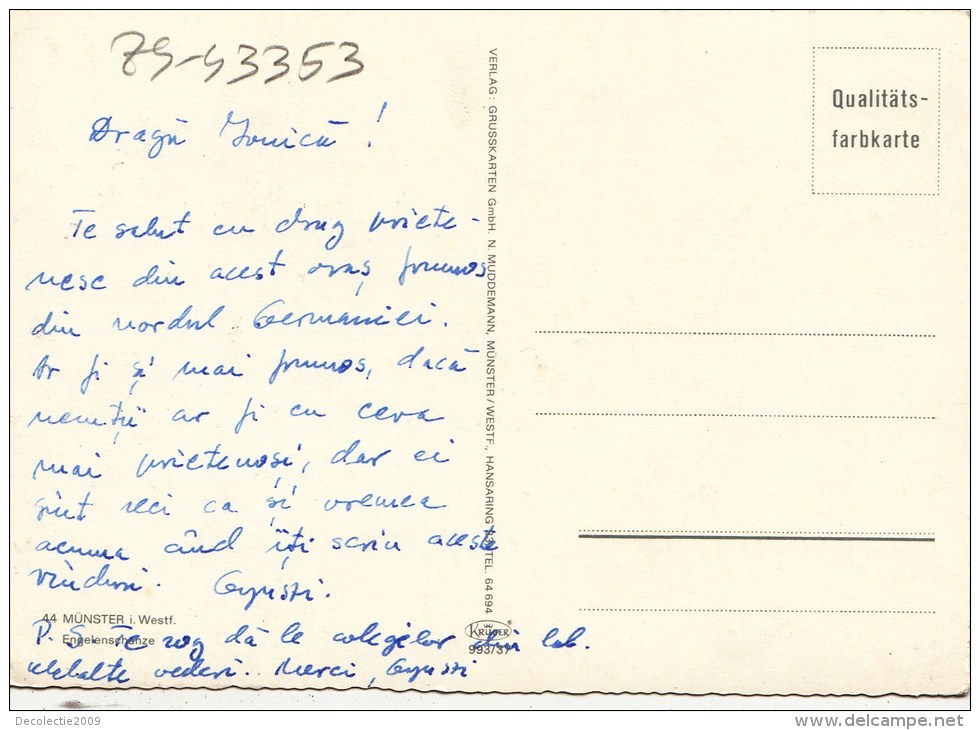 79-43353
Dragă Ionică!
Te salut cu drag priete-
nesc din acest oraș frumos
din nordul Germaniei.
Ar fi și mai frumos, dacă
nemții ar fi cu ceva
mai prietenoși, dar ei
sînt reci ca și vremea
acuma când îți scriu aceste
rînduri. Gyuszi.
44 MÜNSTER i. Westf.
Engelenschanze
P.S. Te rog dă le colegilor din lab.
celelalte vederi. Merci, Gyuszi
VERLAG: GRUSSKARTEN GmbH. N. MUDDEMANN, MÜNSTER/WESTF., HANSARING TEL. 64 694
KRÜGER
993/37
Qualitäts-
farbkarte
Decolectie2009
www.delcampe.net